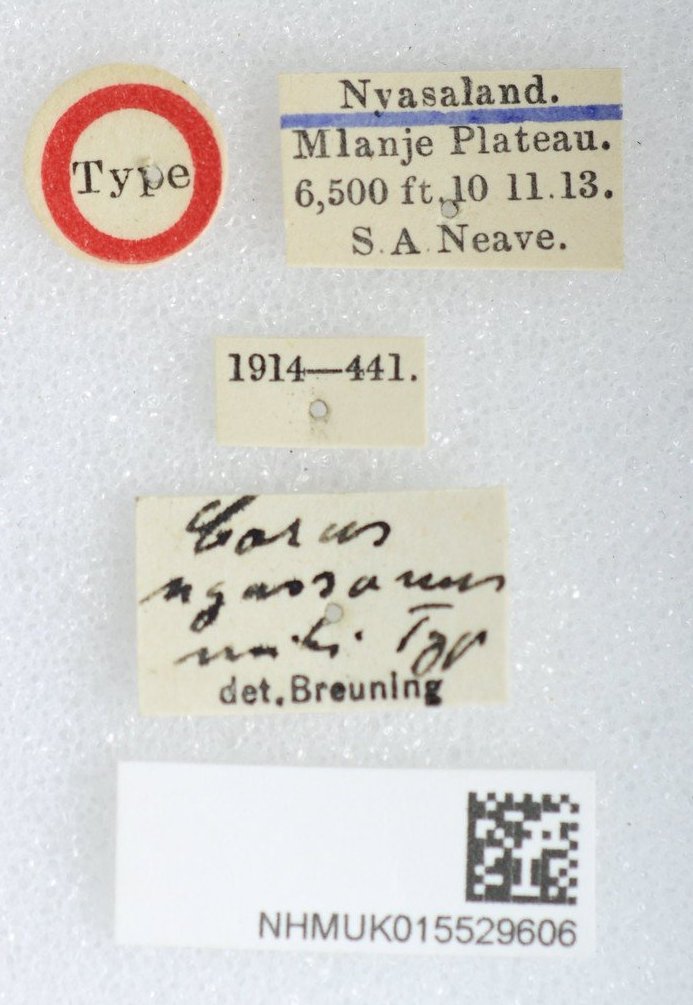 Type
Nyasaland.
Mlanje Plateau.
6,500 ft. 10 11.13.
S.A. Neave.
1914—441.
Corus
nyassanus
mihi Typ
det. Breuning
NHMUK015529606